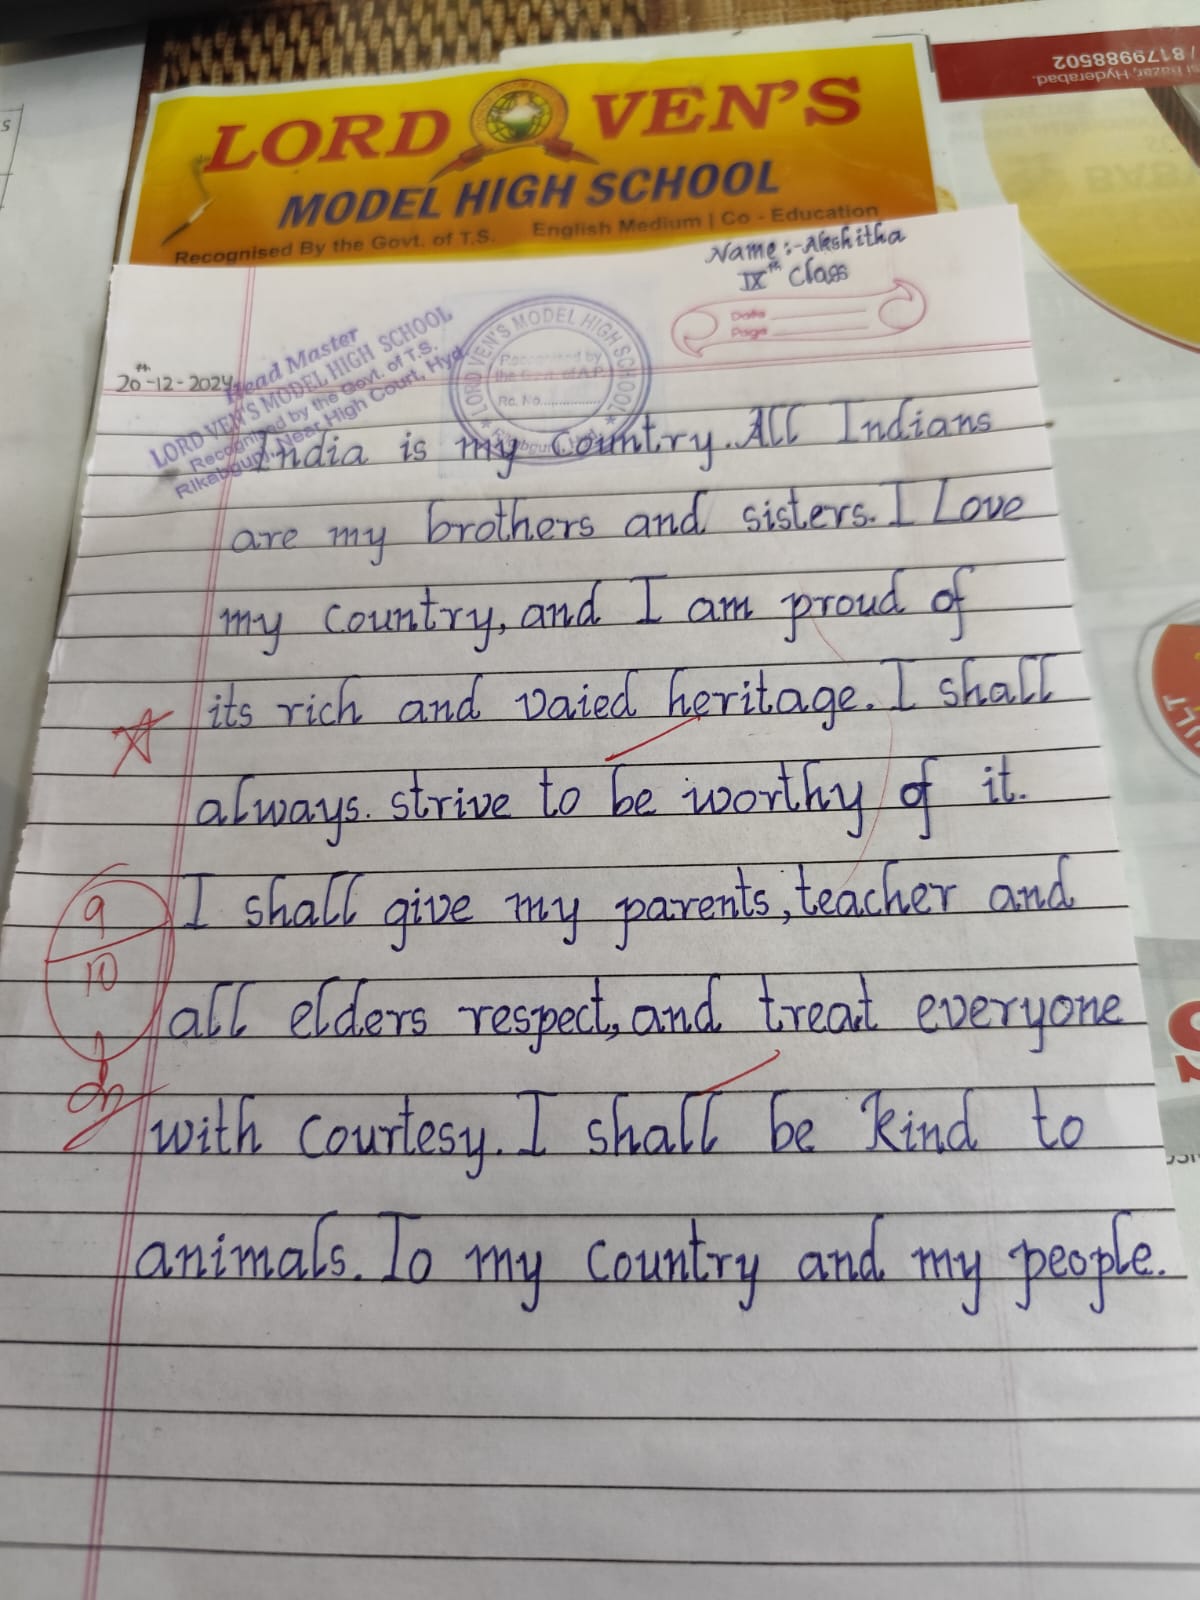 8179988502
si Bazar, Hyderabad.
LORD VEN'S
MODEL HIGH SCHOOL
Recognised By the Govt. of T.S. English Medium | Co - Education
Name :- Akshitha
IXth Class
Date
Page
20th-12-2024
Head Master
LORD VEN'S MODEL HIGH SCHOOL
Recognised by the Govt. of T.S.
Rikabgunj, Near High Court, Hyd.
LORD VEN'S MODEL HIGH SCHOOL
Recognised by
the Govt. of A.P.
Rc. No.
India is my Country. All Indians
are my brothers and sisters. I Love
my Country, and I am proud of
its rich and vaied heritage. I shall
always. strive to be worthy of it.
I shall give my parents, teacher and
all elders respect, and treat everyone
with Courtesy. I shall be kind to
animals. To my Country and my people.
9
10